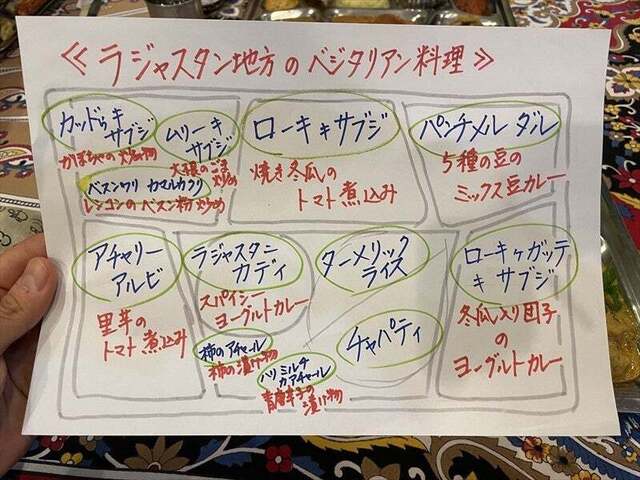 ≪ラジャスタン地方のベジタリアン料理≫
カッドゥキ
サブジ
かぼちゃの炒め物
ムリーキ
サブジ
大根のごま
炒め
ベスンワリ カマルカクリ
レンコンのベスン粉炒め
ローキキサブジ
焼き冬瓜の
トマト煮込み
パンチメル ダル
5種の豆の
ミックス豆カレー
アチャリー
アルビ
里芋の
トマト煮込み
ラジャスタニ
カディ
スパイシー
ヨーグルトカレー
柿のアチャール
柿の漬け物
ハリミルチ
カアチャール
青唐辛子の
漬け物
ターメリック
ライス
チャパティ
ローキケガッテ
キサブジ
冬瓜入り団子
の
ヨーグルトカレー